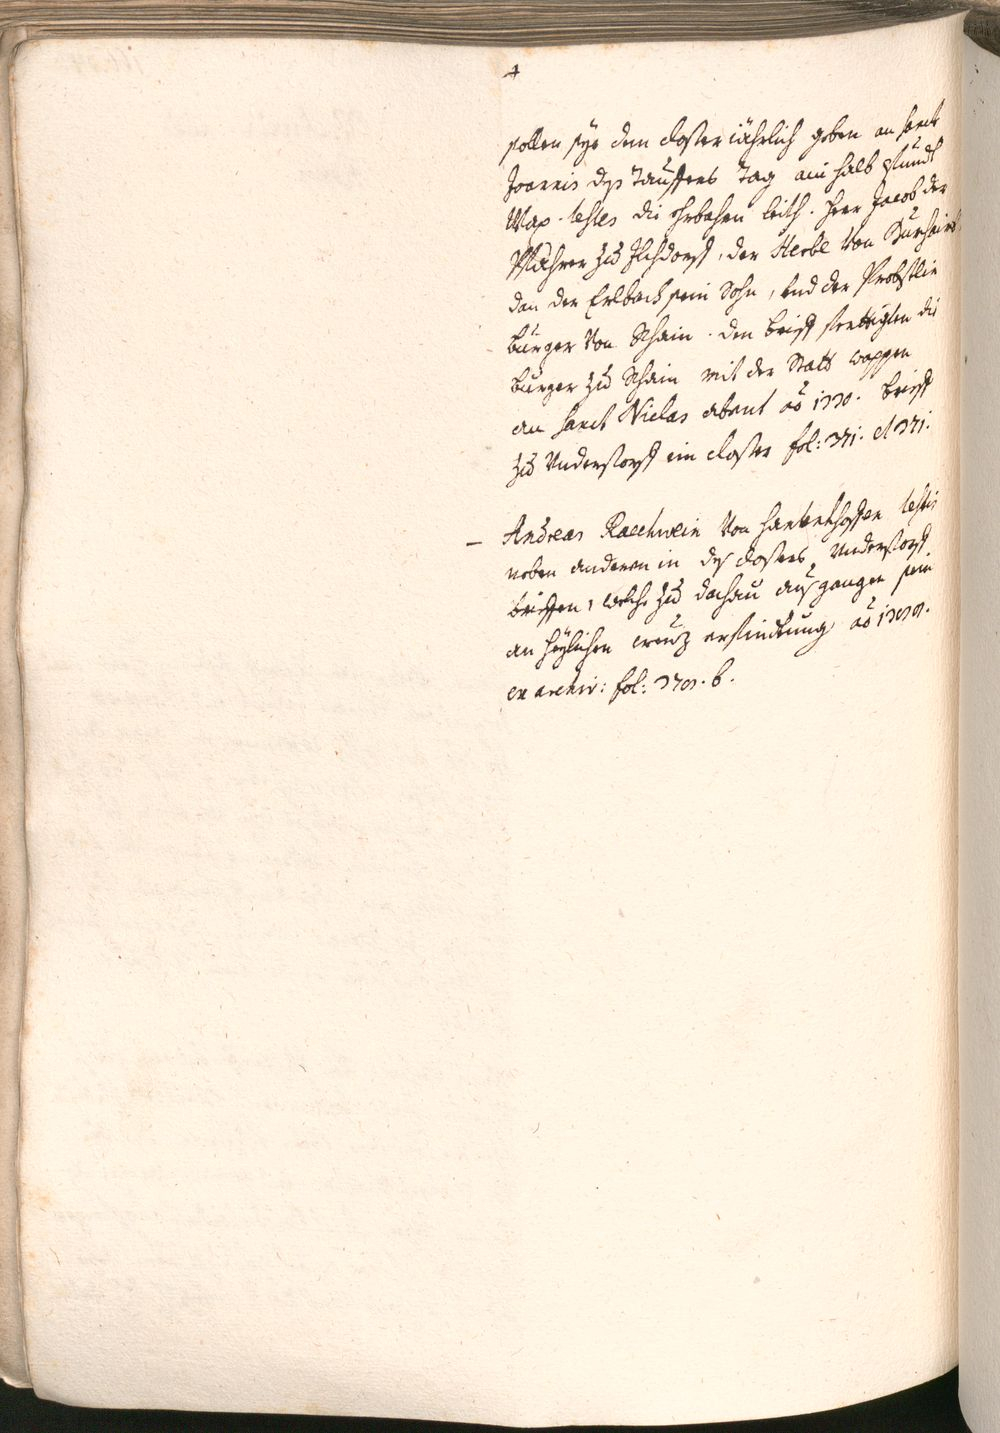 4
sollen sye dem closter iährlich geben an sanct
Joannis deß Tauffers Tag ain halb pfundt
Wax. testes die ehrbahen leith. herr Jacob der
Pfahrer zu Ilchdorff, der Herbl von
dan der Erlbach sein Sohn, und der Probstlin
burger von Schain. den brieff ferttigten die
burger zu Schain mit der Statt wappen
an sanct Niclas abent ao 1330. brieff
zu Understorff im closter fol: 371. et 371.
– Andreas Raechwein von testis
neben anderen in deß closters Understorff
brieffen, welche zu dachau ausgangen sein
an heylichen creuz erfindtung ao
ex archiv: fol: b.